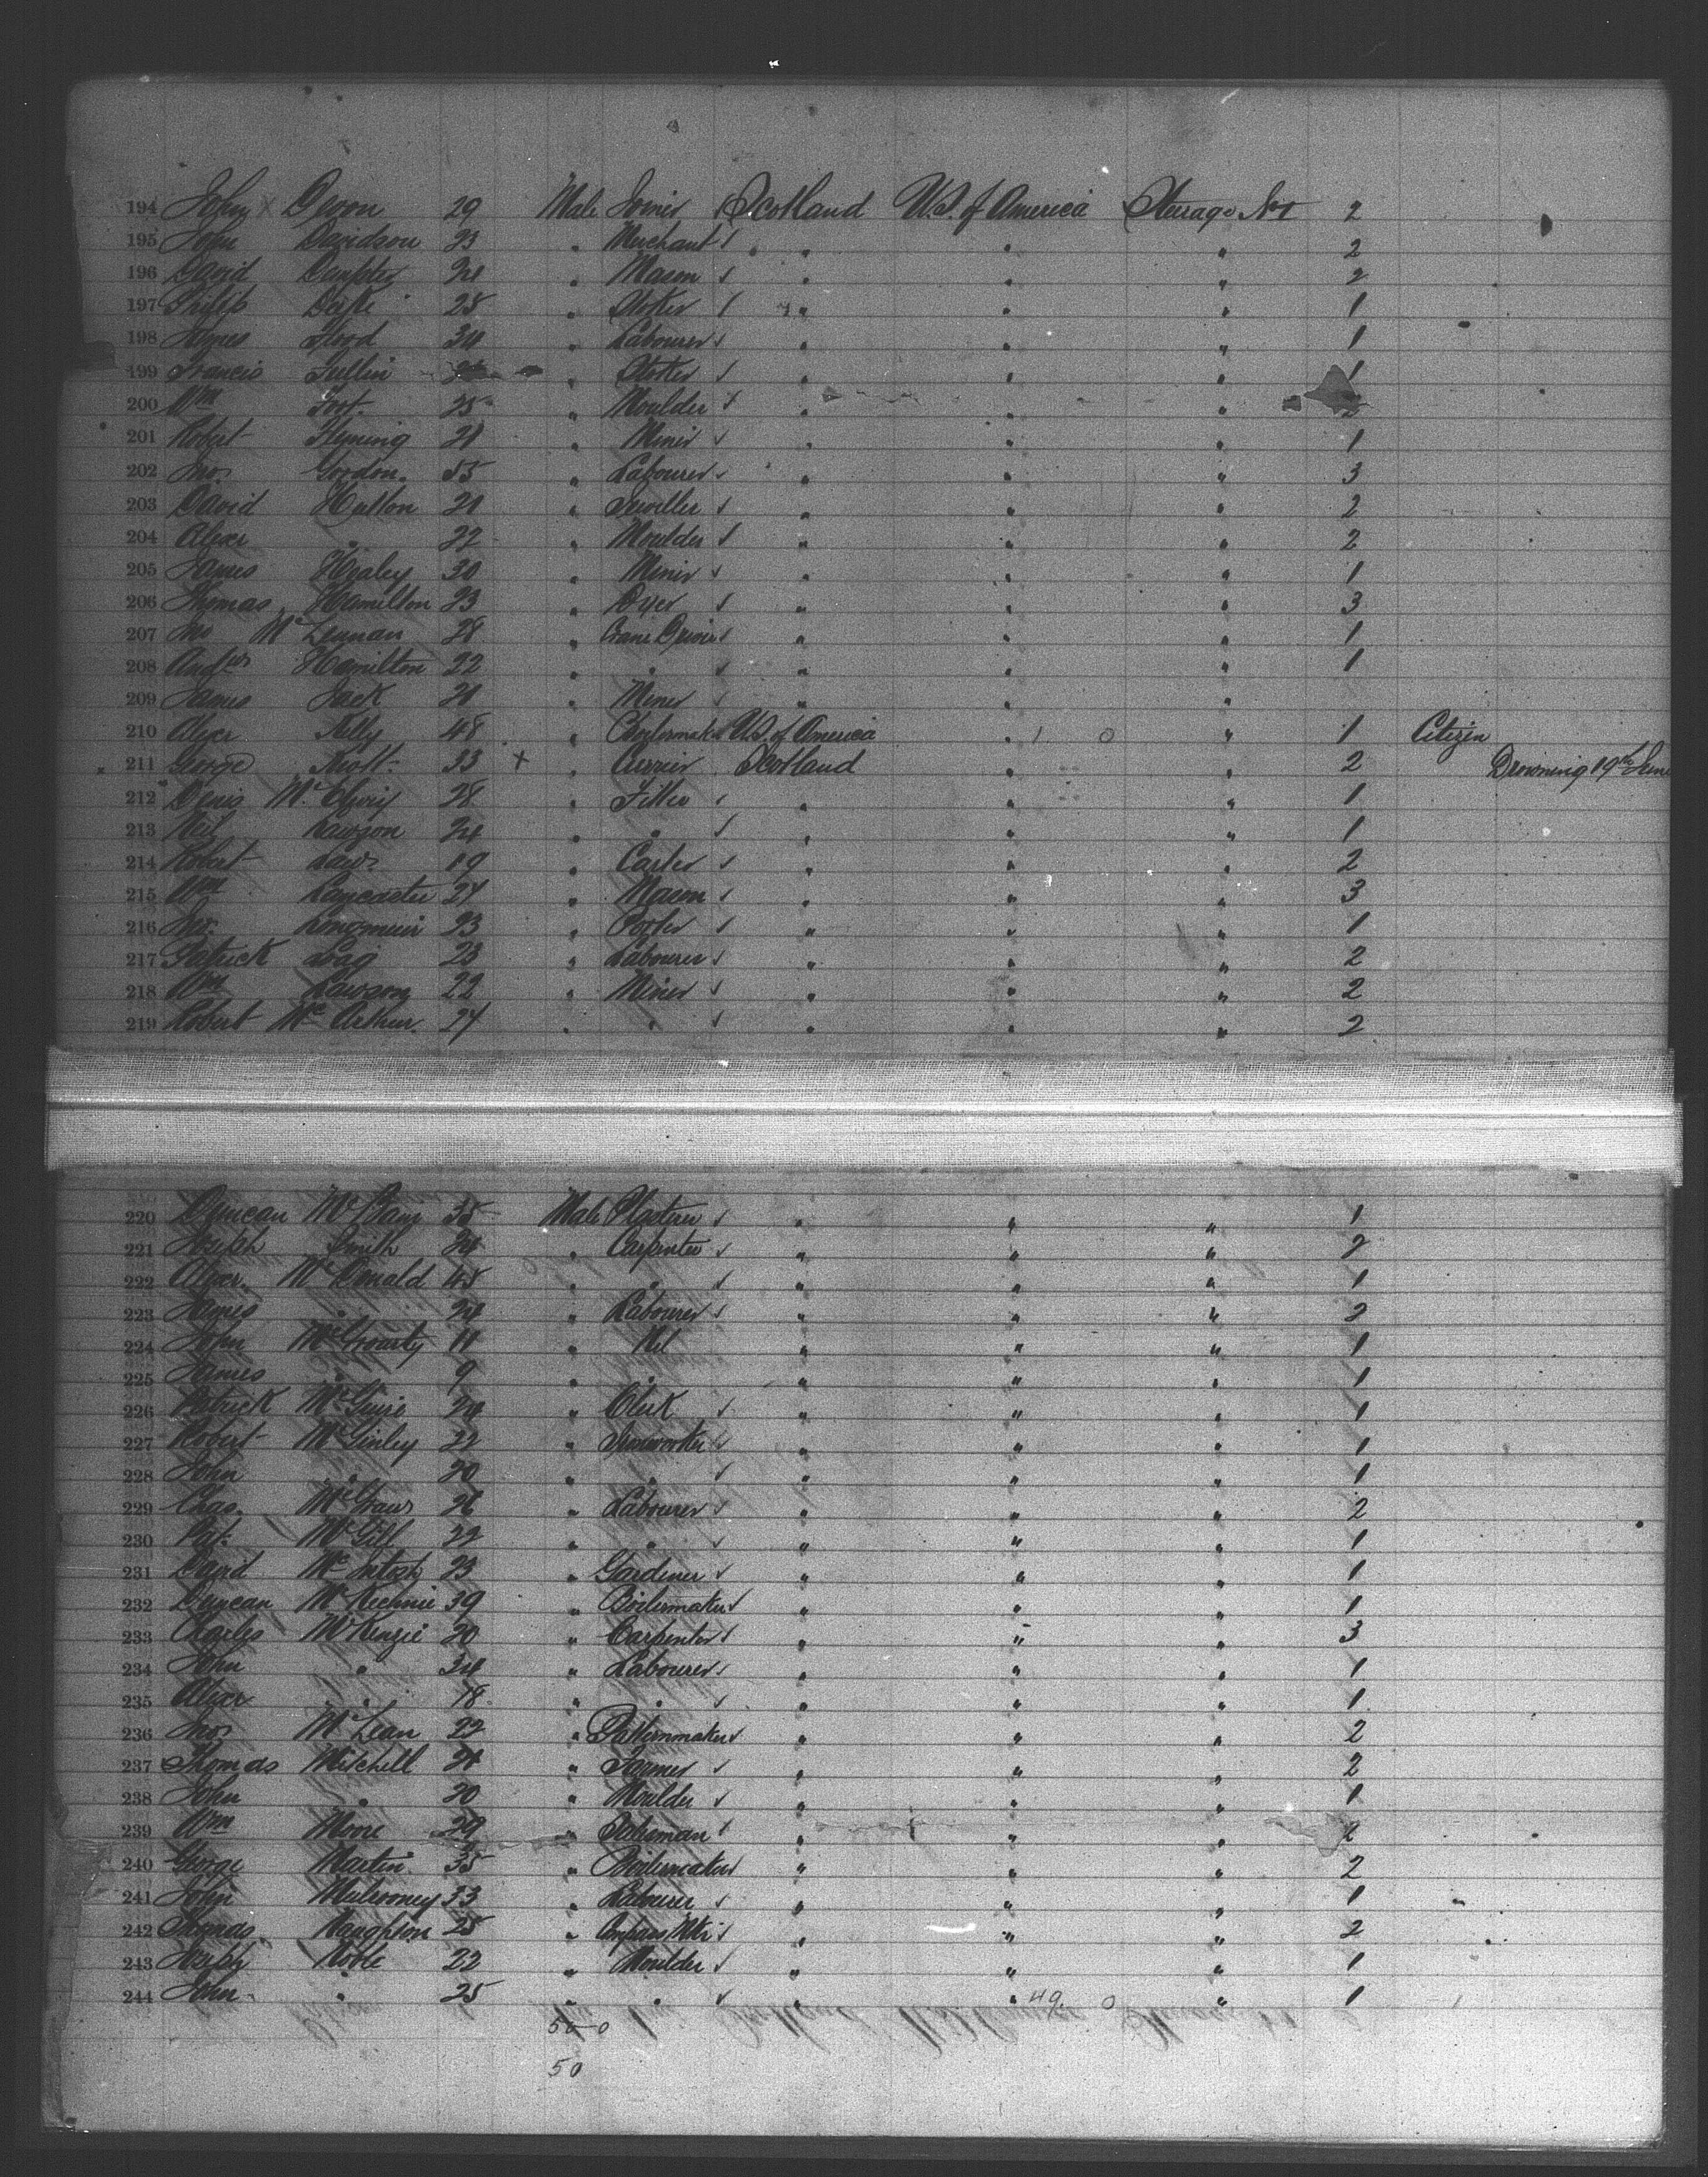 194 John Devon 29 Male Joiner Scotland U.S. of America Steerage No 1 2
195 John Davidson 23 " Merchant " " " 2
196 David Dempster 24 " Mason " " " 2
197 Philip 28 " Stoker " " " 1
198 James Flood 34 " Labourer " " " 1
199 Francis " Stoker " " " 1
200 Wm 25 " Moulder " " "
201 Robert Fleming 21 " Miner " " " 1
202 Jno. Gordon 55 " Labourer " " " 3
203 David Hutton 21 " Jeweller " " " 2
204 Alexr " 22 " Moulder " " " 2
205 James Healey 30 " Miner " " " 1
206 Thomas Hamilton 23 " Dyer " " " 3
207 Jno McLennan 28 " Crane Driver " " " 1
208 Andrw Hamilton 22 " " " " " 1
209 James Jack 21 " Miner " " "
210 Alexr Kelly 48 " Boilermaker U.S. of America " 1 0 " 1 Citizen
211 George Knott 33 X " Currier Scotland " " 2 Drowning 19th June
212 Denis 28 " Fitter " " " 1
213 Neil Lawson 24 " " " " " 1
214 Robert Laws 19 " Carter " " " 2
215 Wm Lancaster 24 " Mason " " " 3
216 Jno. Longmuir 23 " Potter " " " 1
217 Patrick 23 " Labourer " " " 2
218 Wm Lawson 22 " Miner " " " 2
219 Robert McArthur 24 " " " " " 2
220 Duncan 35 Male Plasterer " " " 1
221 Joseph Smith 24 " Carpenter " " " 2
222 Alexr. McDonald 45 " " " " " 1
223 James " 24 " Labourer " " " 2
224 John McGroarty 11 " Nil " " " 1
225 James " 9 " " " " " 1
226 Patrick McGuire 24 " Clerk " " " 1
227 Robert McGinley 22 " Ironworker " " " 1
228 John " 20 " " " " " 1
229 Chas. McGraw 26 " Labourer " " " 2
230 Pat. McGill 22 " " " " " 1
231 David McIntosh 23 " Gardener " " " 1
232 Duncan McKechnie 39 " Boilermaker " " " 1
233 Charles McKenzie 20 " Carpenter " " " 3
234 John " 34 " Labourer " " " 1
235 Alexr " 18 " " " " " 1
236 Jno. McLean 22 " Patternmaker " " " 2
237 Thomas Mitchell 21 " Farmer " " " 2
238 John " 20 " Moulder " " " 1
239 Wm Moore 29 " Salesman " " " 2
240 George Martin 35 " Boilermaker " " " 2
241 John Mulrooney 33 " Labourer " " " 1
242 Thomas Naughton 25 " Compass Mkr " " " 2
243 Joseph Noble 22 " Moulder " " " 1
244 John " 25 " " " " 49. 0 " 1
50-0
50